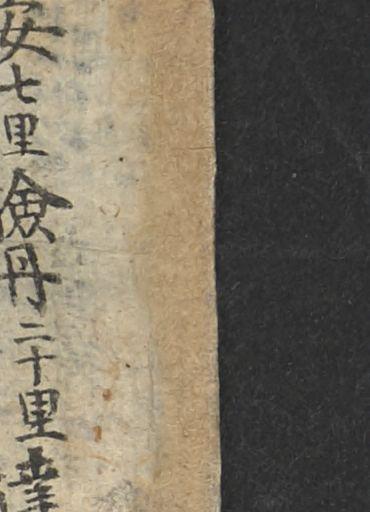 安七里 倹丹二十里